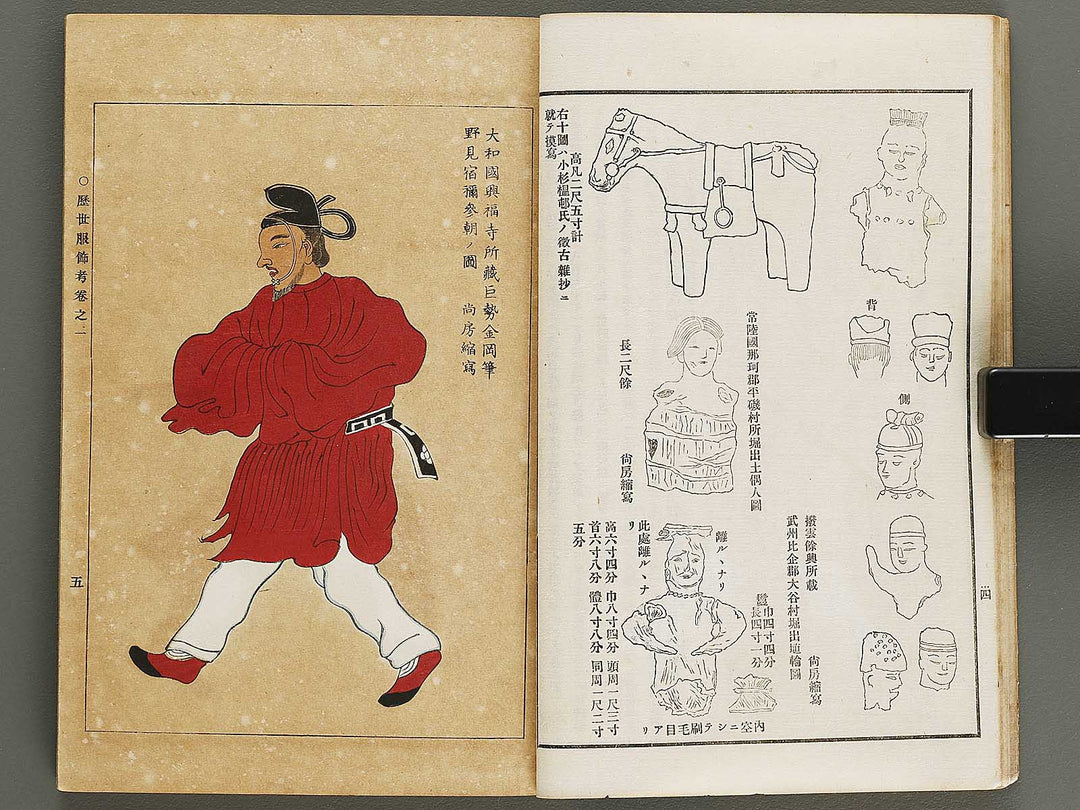 四
背
側
撥雲餘興所載
武州比企郡大谷村堀出埴輪圖
尙房縮寫
常陸國那珂郡平磯村所堀出土偶人圖
長二尺餘
尙房縮寫
離ルヽナリ
鬘巾四寸四分
長四寸一分
此處離ルヽナリ
高六寸四分 巾八寸四分 頭周一尺三寸
首六寸八分 體八寸八分 同周一尺二寸
五分
內空ニシテ刷毛目アリ
高凡二尺五寸計
右十圖ハ小杉榲邨氏ノ徵古雜抄ニ
就テ摸寫
大和國興福寺所藏巨勢金岡筆
野見宿禰參朝ノ圖
尙房縮寫
○歷世服飾考卷之二
五